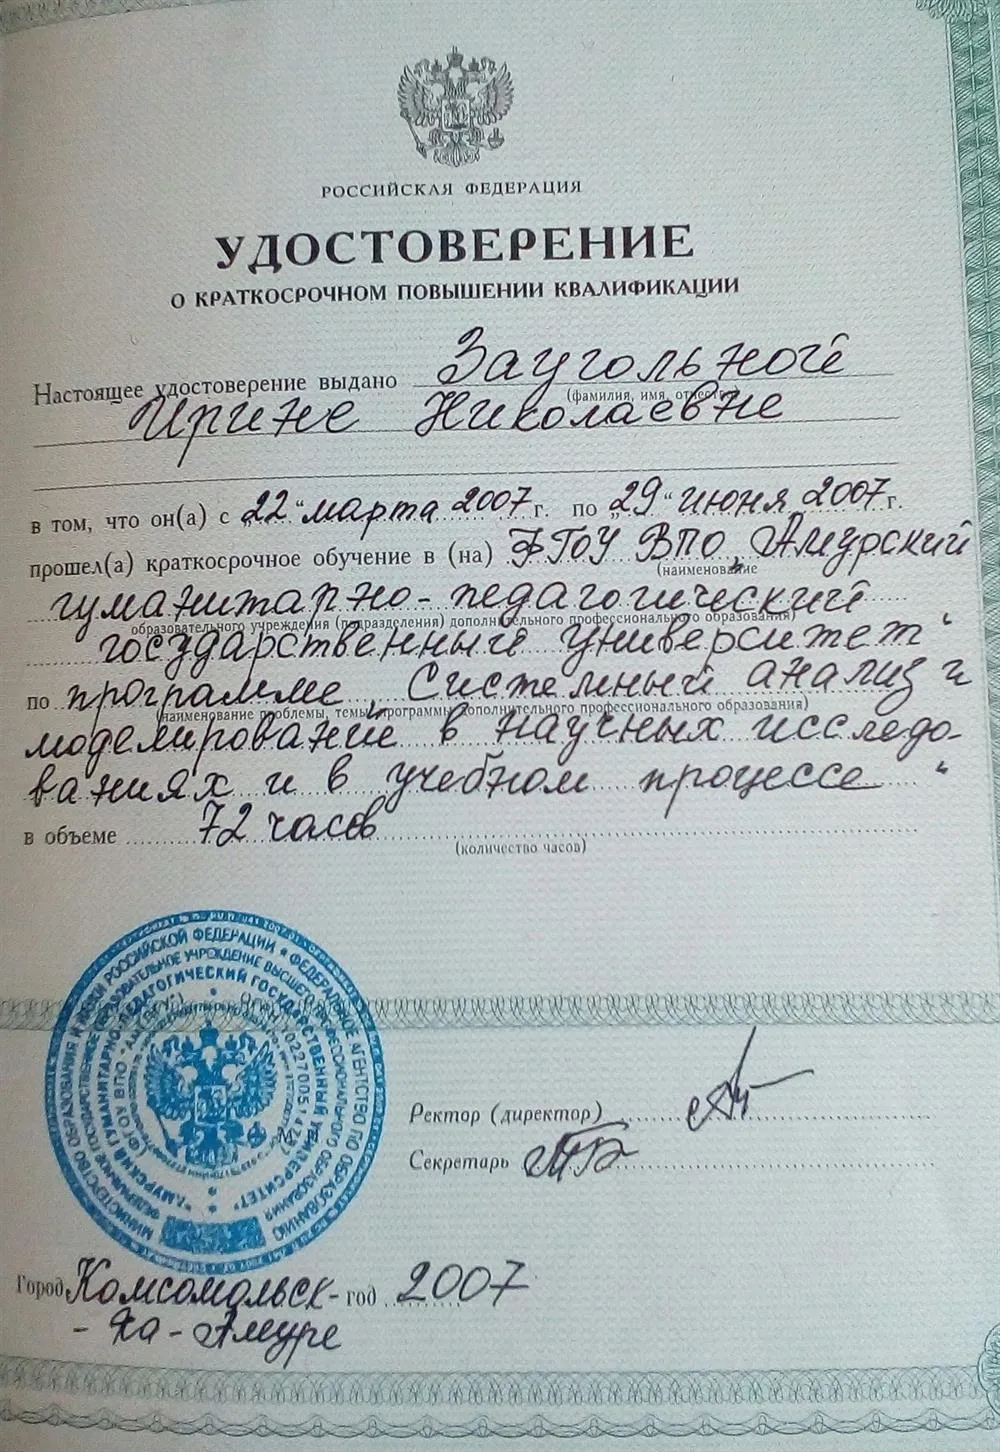 РОССИЙСКАЯ ФЕДЕРАЦИЯ
УДОСТОВЕРЕНИЕ
О КРАТКОСРОЧНОМ ПОВЫШЕНИИ КВАЛИФИКАЦИИ
Настоящее удостоверение выдано Заугольной
(фамилия, имя, отчество)
Ирине Николаевне
в том, что он(а) с „22“ марта 2007 г. по „29“ июня 2007 г.
прошел(а) краткосрочное обучение в (на) ФГОУ ВПО „Амурский
(наименование
гуманитарно-педагогический
образовательного учреждения (подразделения) дополнительного профессионального образования)
государственный университет“
по программе „Системный анализ и
(наименование проблемы, темы, программы дополнительного профессионального образования)
моделирование в научных исследо-
ваниях и в учебном процессе“
в объеме 72 часов
(количество часов)
МИНИСТЕРСТВО ОБРАЗОВАНИЯ И НАУКИ РОССИЙСКОЙ ФЕДЕРАЦИИ * ФЕДЕРАЛЬНОЕ АГЕНТСТВО ПО ОБРАЗОВАНИЮ
ФЕДЕРАЛЬНОЕ ГОСУДАРСТВЕННОЕ ОБРАЗОВАТЕЛЬНОЕ УЧРЕЖДЕНИЕ ВЫСШЕГО ПРОФЕССИОНАЛЬНОГО ОБРАЗОВАНИЯ
"АМУРСКИЙ ГУМАНИТАРНО-ПЕДАГОГИЧЕСКИЙ ГОСУДАРСТВЕННЫЙ УНИВЕРСИТЕТ"
Ректор (директор)
Секретарь
Город Комсомольск- год 2007
-на-Амуре